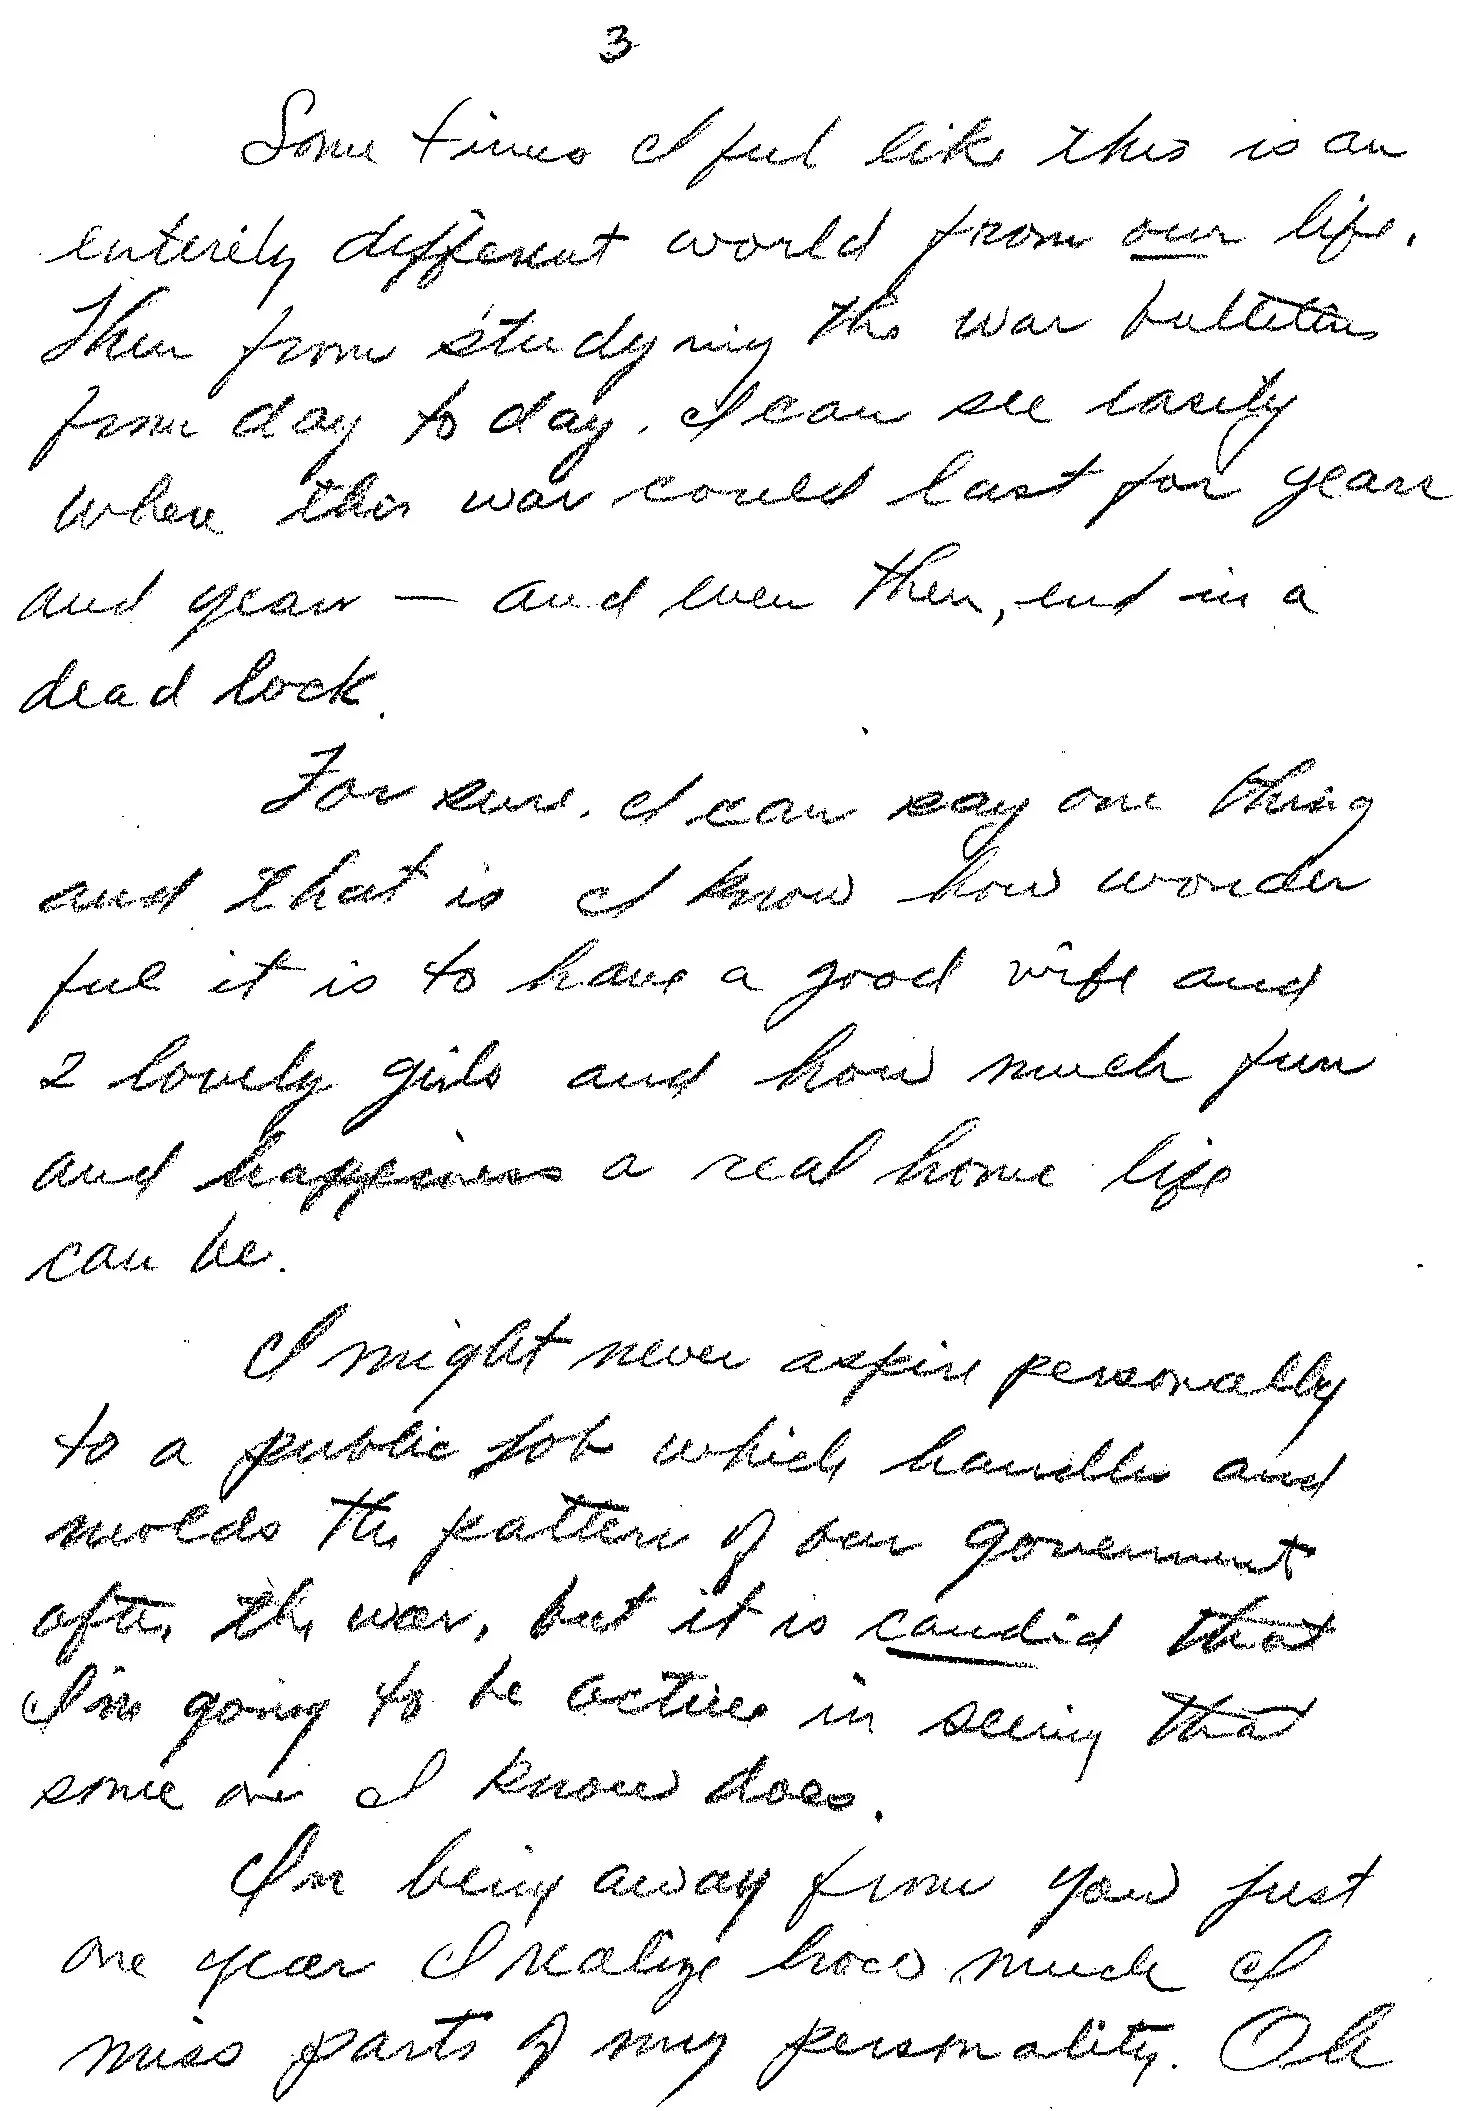 3
Some times I feel like this is an
enterely different world from our life.
Then from studying the war bulletins
from day to day. I can see easily
where this war could last for years
and years — and even then, end in a
dead lock.
For sure. I can say one thing
and that is I know how wonder
ful it is to have a good wife and
2 lovely girls and how much fun
and happiness a real home life
can be.
I might never aspire personally
to a public job which handles and
molds the pattern of our government
after the war, but it is candid that
I'm going to be active in seeing that
some one I know does.
In being away from you just
one year I realize how much I
miss parts of my personality. Oh